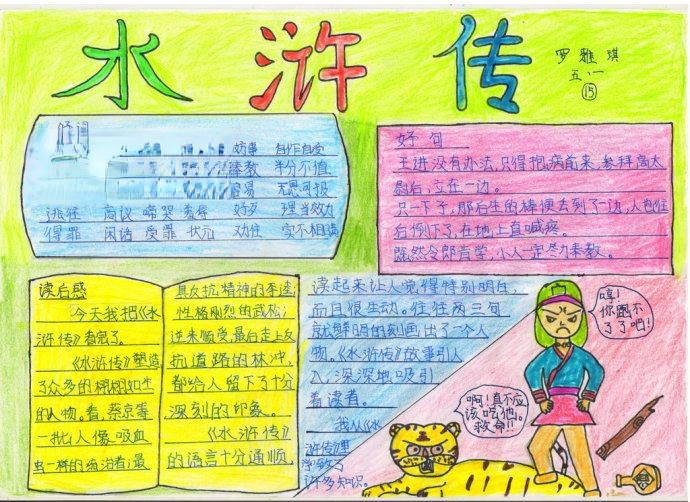 水浒传
罗雅琪
五.一
⑮
好词
自作自受
奉教 半分不值
容易 无恩可报
逃往 商议 啼哭 羞辱 好歹 理当效力
得罪 闲话 受罪 状元 劝住 实不相瞒
好句
王进没有办法,只得抱病前来,参拜高太
尉后,立在一边。
只一下子,那后生的棒便去到了一边,人也往
后倒下了,在地上直喊疼。
既然令郎肯学,小人一定尽力奉教。
读后感
今天我把《水
浒传》看完了。
《水浒传》塑造
了众多的栩栩如生
的人物。看,蔡京等
一批人像吸血
虫一样的统治者;最
具反抗精神的李逵;
性格刚烈的武松;
逆来顺受最后走上反
抗道路的林冲,
都给人留下了十分
深刻的印象。
《水浒传》
的语言十分通顺,
读起来让人觉得特别明白,
而且很生动。往往两三句
就鲜明的刻画出了一个人
物。《水浒传》故事引人
入,深深地吸引
着读者。
我从《水
浒传》里
学到了
许多知识。
哼!
你跑不
了了吧!
啊!真不应
该吃他。
救命!!